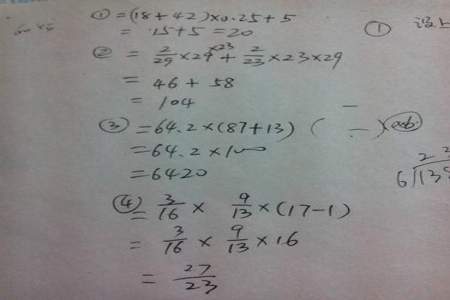 ① =(18+42)×0.25+5
= 15+5=20
① 设上
② = 2/29 ×29 ×23 + 2/23 ×23×29
= 46 + 58
= 104
③ =64.2×(87+13)
=64.2×100
=6420
④
= 3/16 × 9/13 ×(17-1)
= 3/16 × 9/13 ×16
= 27/23